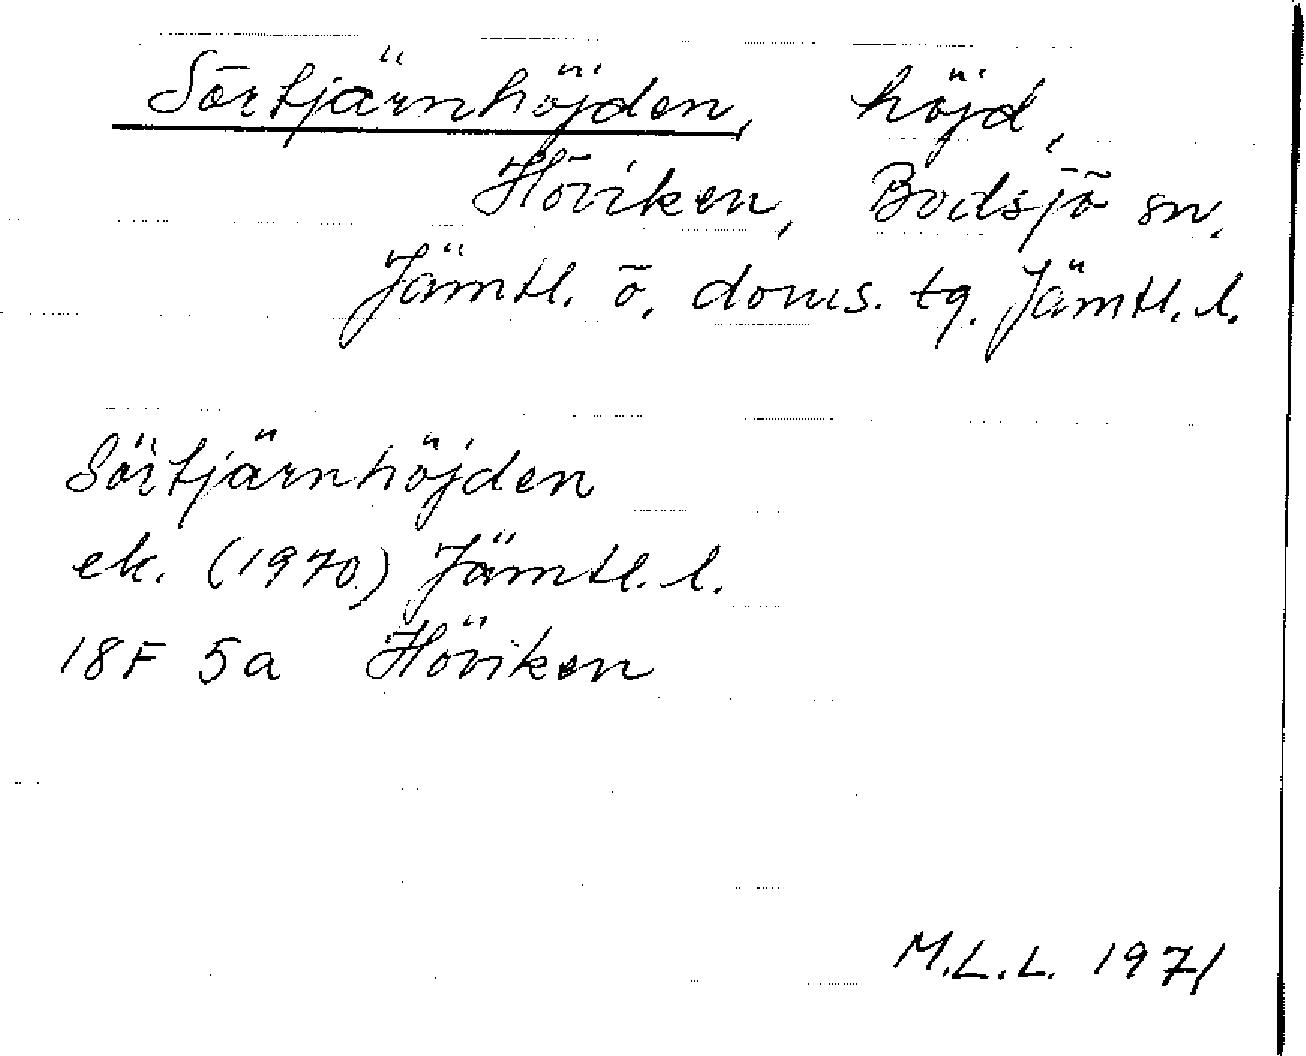 Sörtjärnhöjden, höjd,
Höviken, Bodsjö sn.
Jämtl. ö. doms. tg. Jämtl. l.
Sörtjärnhöjden
ek. (1970) Jämtl. l.
18F 5a Höviken
M.L.L. 1971